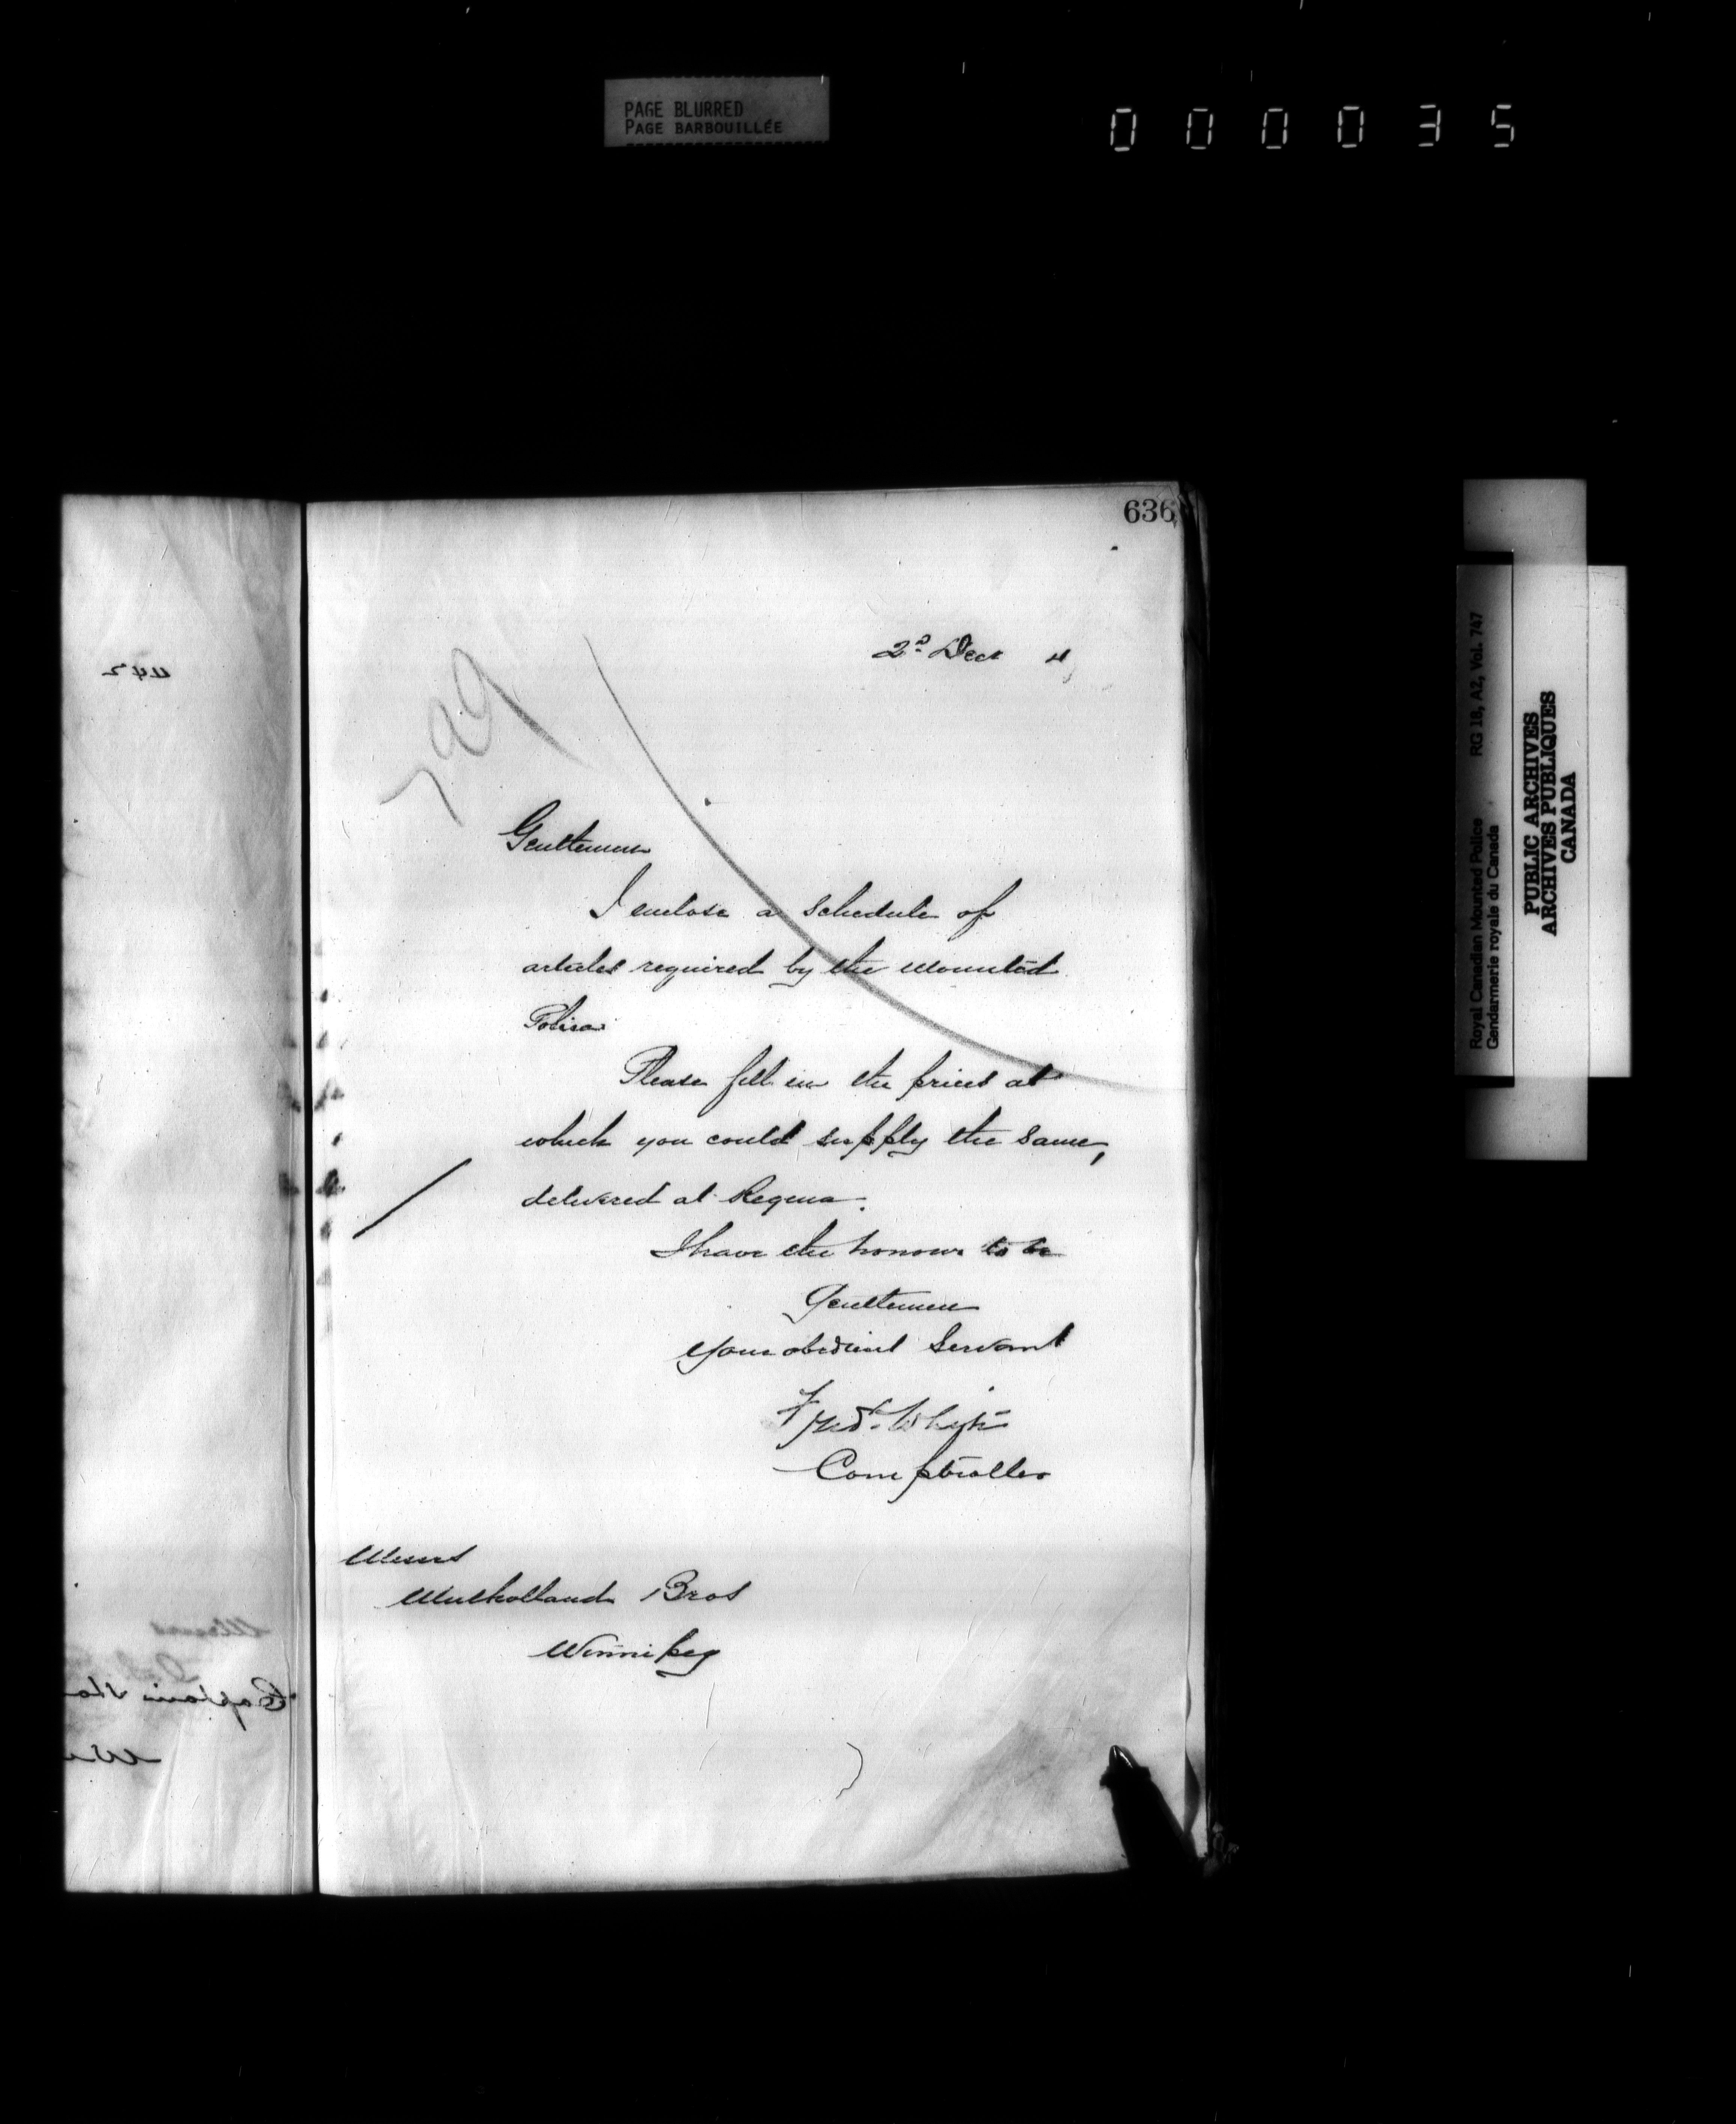 PAGE BLURRED
PAGE BARBOUILLÉE
000035
636
2d Dec 4
Gentlemen
I enclose a schedule of
articles required by the Mounted
Police.
Please fill in the prices at
which you could supply the same,
delivered at Regina.
I have the honour to be
Gentlemen
Your obedient Servant
Fred. White
Comptroller
Messrs
Mulholland Bros
Winnipeg
442
Messrs
Captain
Royal Canadian Mounted Police RG 18, A2, Vol. 747
Gendarmerie royale du Canada
PUBLIC ARCHIVES
ARCHIVES PUBLIQUES
CANADA